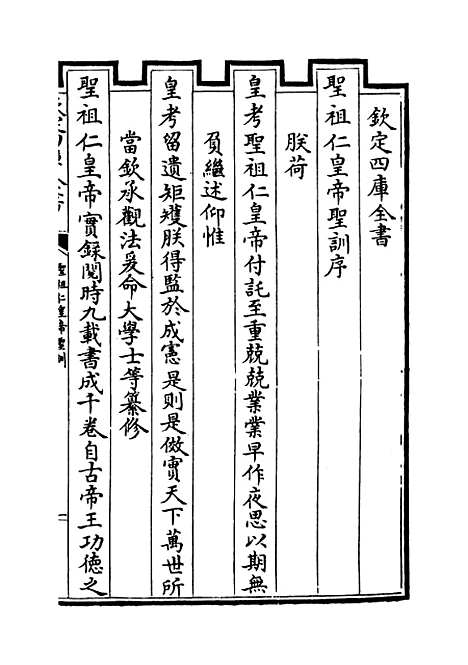 欽定四庫全書
聖祖仁皇帝聖訓序
朕荷
皇考聖祖仁皇帝付託至重兢兢業業早作夜思以期無
負繼述仰惟
皇考留遺矩矱朕得監於成憲是則是傚實天下萬世所
當欽承觀法爰命大學士等纂修
聖祖仁皇帝實録閱時九載書成千卷自古帝王功德之
聖祖仁皇帝聖訓